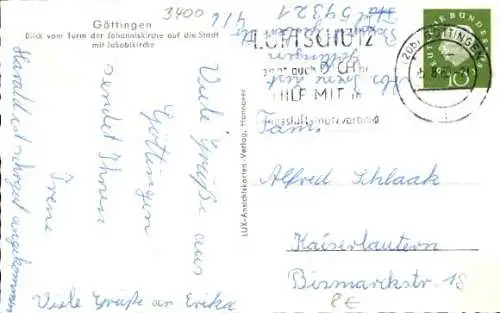 Göttingen
Blick vom Turm der Johanniskirche auf die Stadt
mit Jakobikirche
3400
4/6
54321
LUFTSCHUTZ
auch DICH
HILF MIT im
Bundesluftschutzverband
DEUTSCHE BUNDESPOST
10
(20b) GÖTTINGEN
Viele Grüße aus
Göttingen
sendet Ihnen
Irene
Harald ist schon gut angekommen
Viele Grüße an Erika
LUX-Ansichtskarten-Verlag, Hannover
Fam.
Alfred Schlaak
Kaiserlautern
Bismarckstr. 18
8€